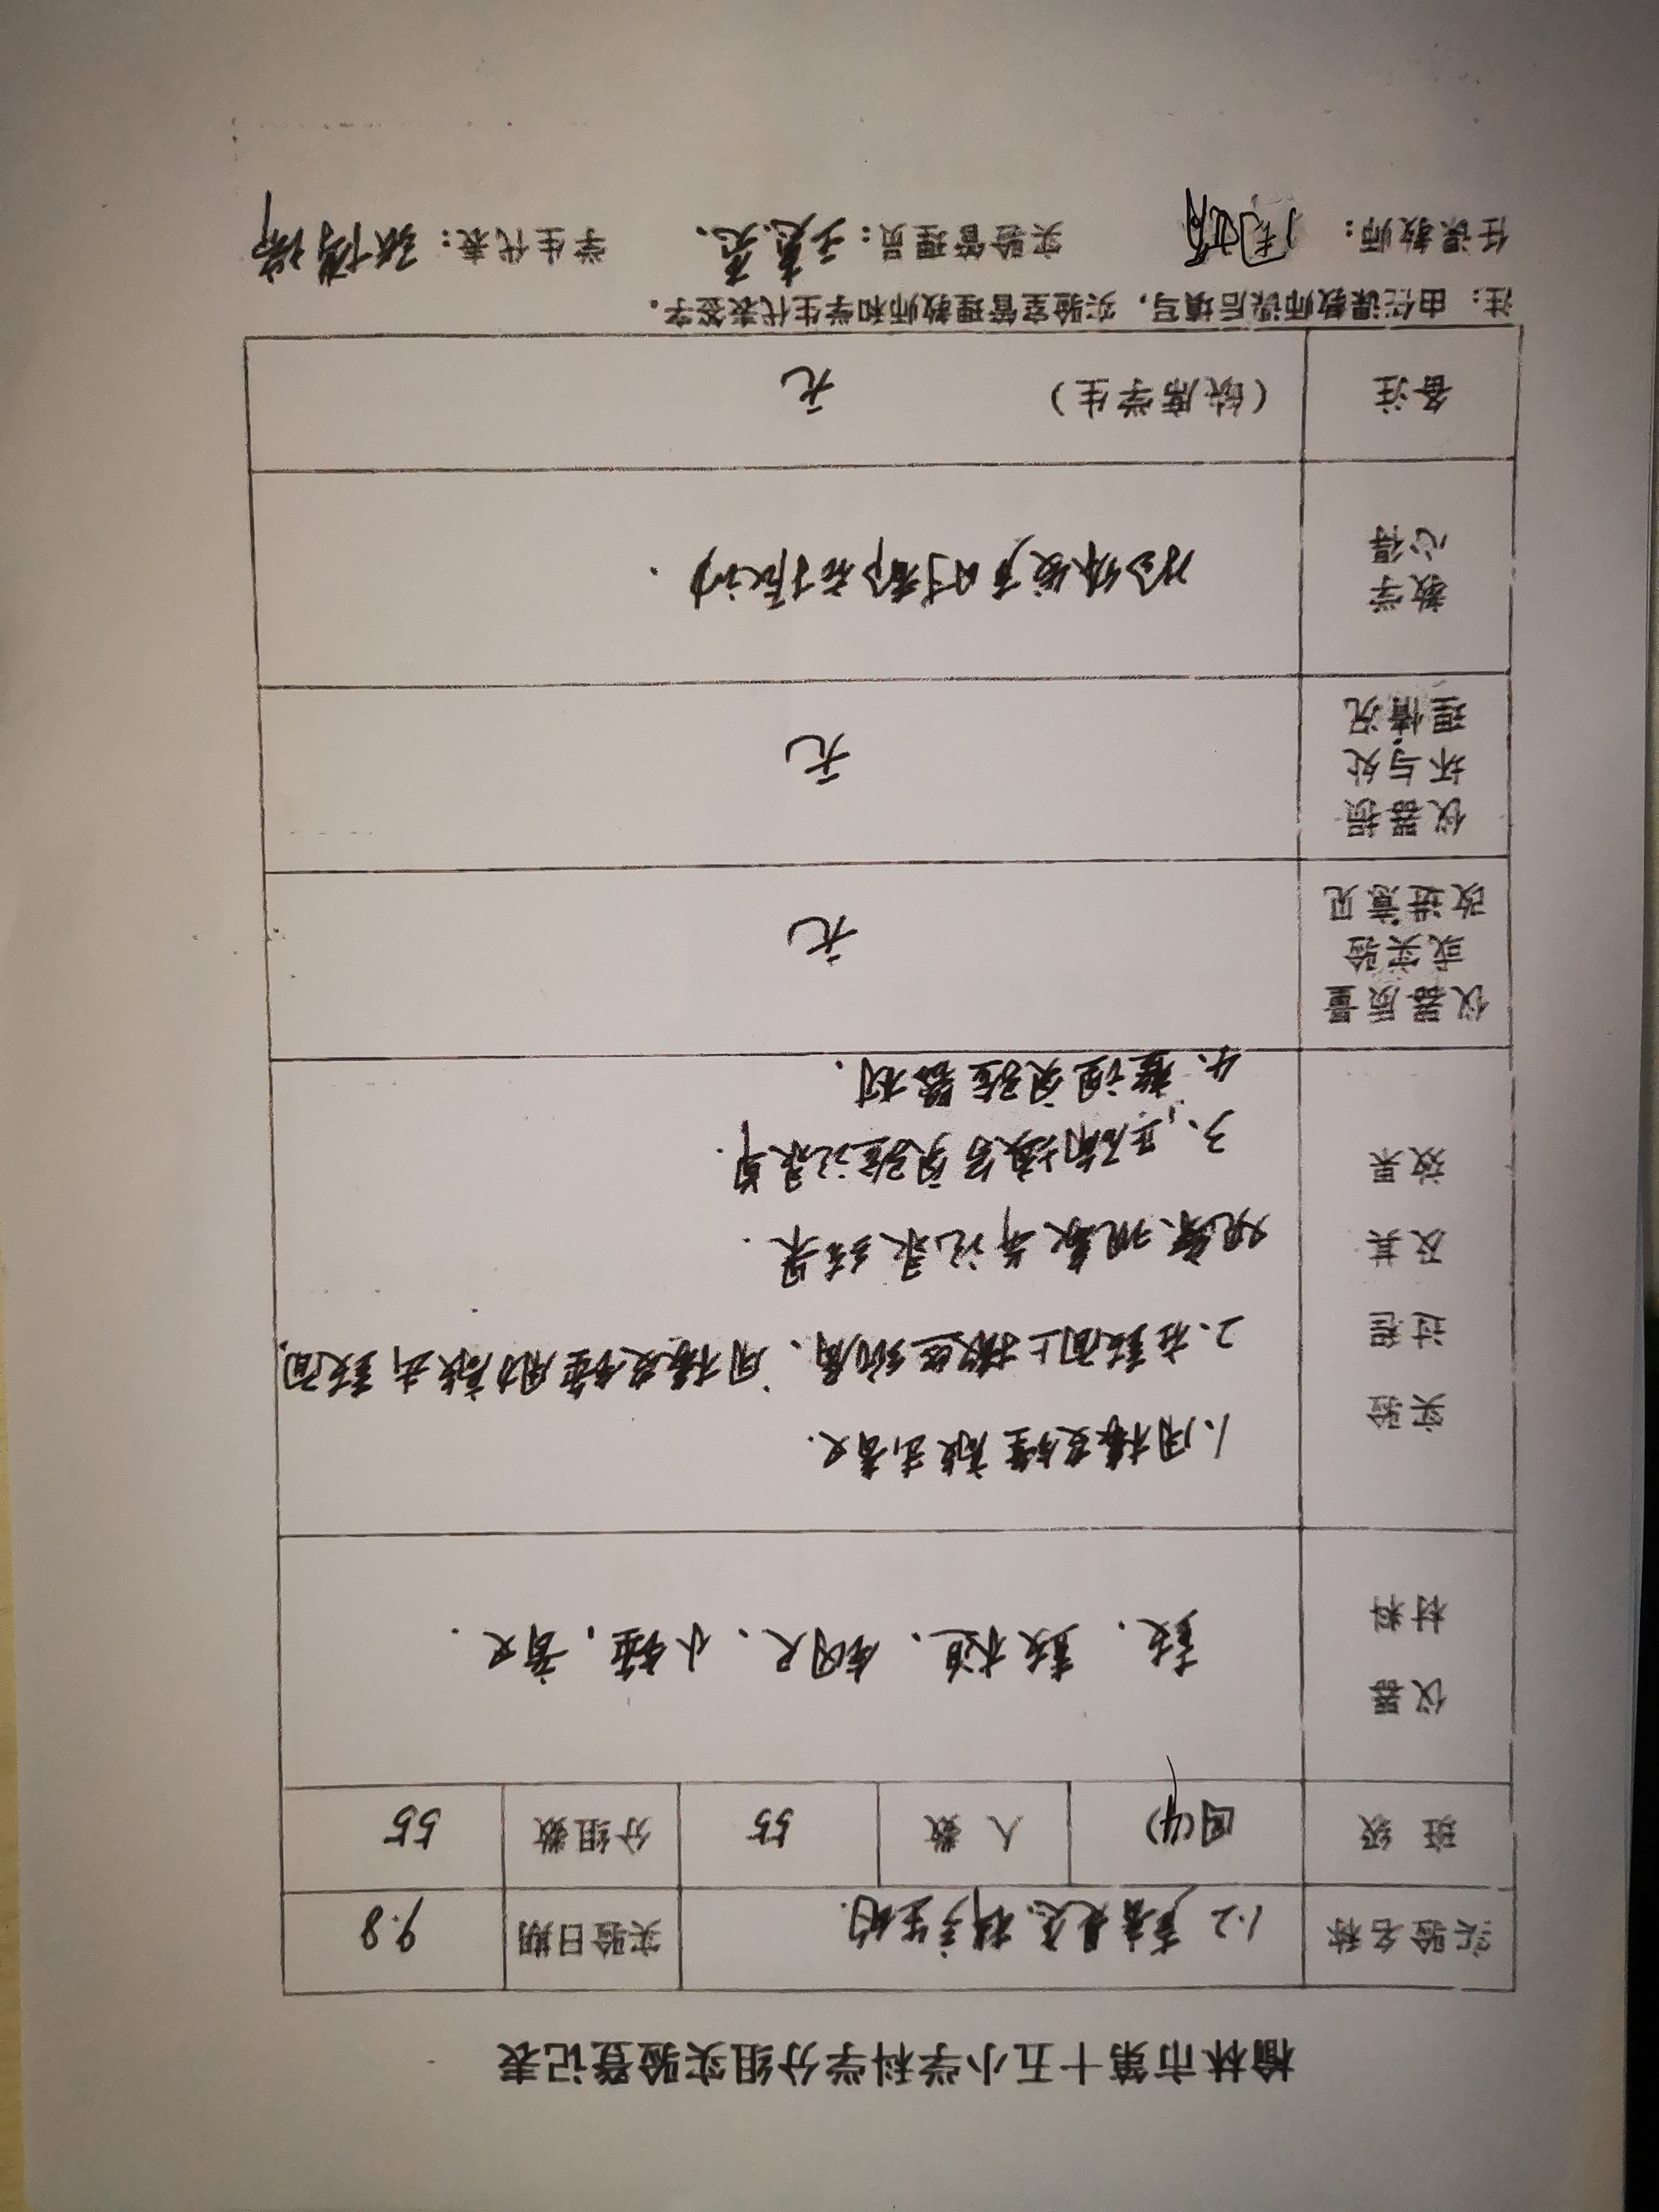 榆林市第十五小学科学分组实验登记表
实验名称 1.2 声音是怎样产生的. 实验日期 9.8
班 级 四(4) 人 数 55 分组数 55
仪器
材料
鼓、鼓槌、钢尺、小锤,音叉.
实验
过程
及其
效果
1、用橡皮锤敲击音叉.
2、在鼓面上撒些纸屑、用橡皮锤用力敲击鼓面,
观察现象并记录结果.
3、正确填写实验记录单.
4、整理实验器材.
仪器质量
或实验
改进意见
无
仪器损
坏与处
理情况
无
教学
心得
物体发声时都在振动.
备注
(缺席学生) 无
注:由任课教师课后填写,实验室管理教师和学生代表签字。
任课教师: 实验管理员: 学生代表: